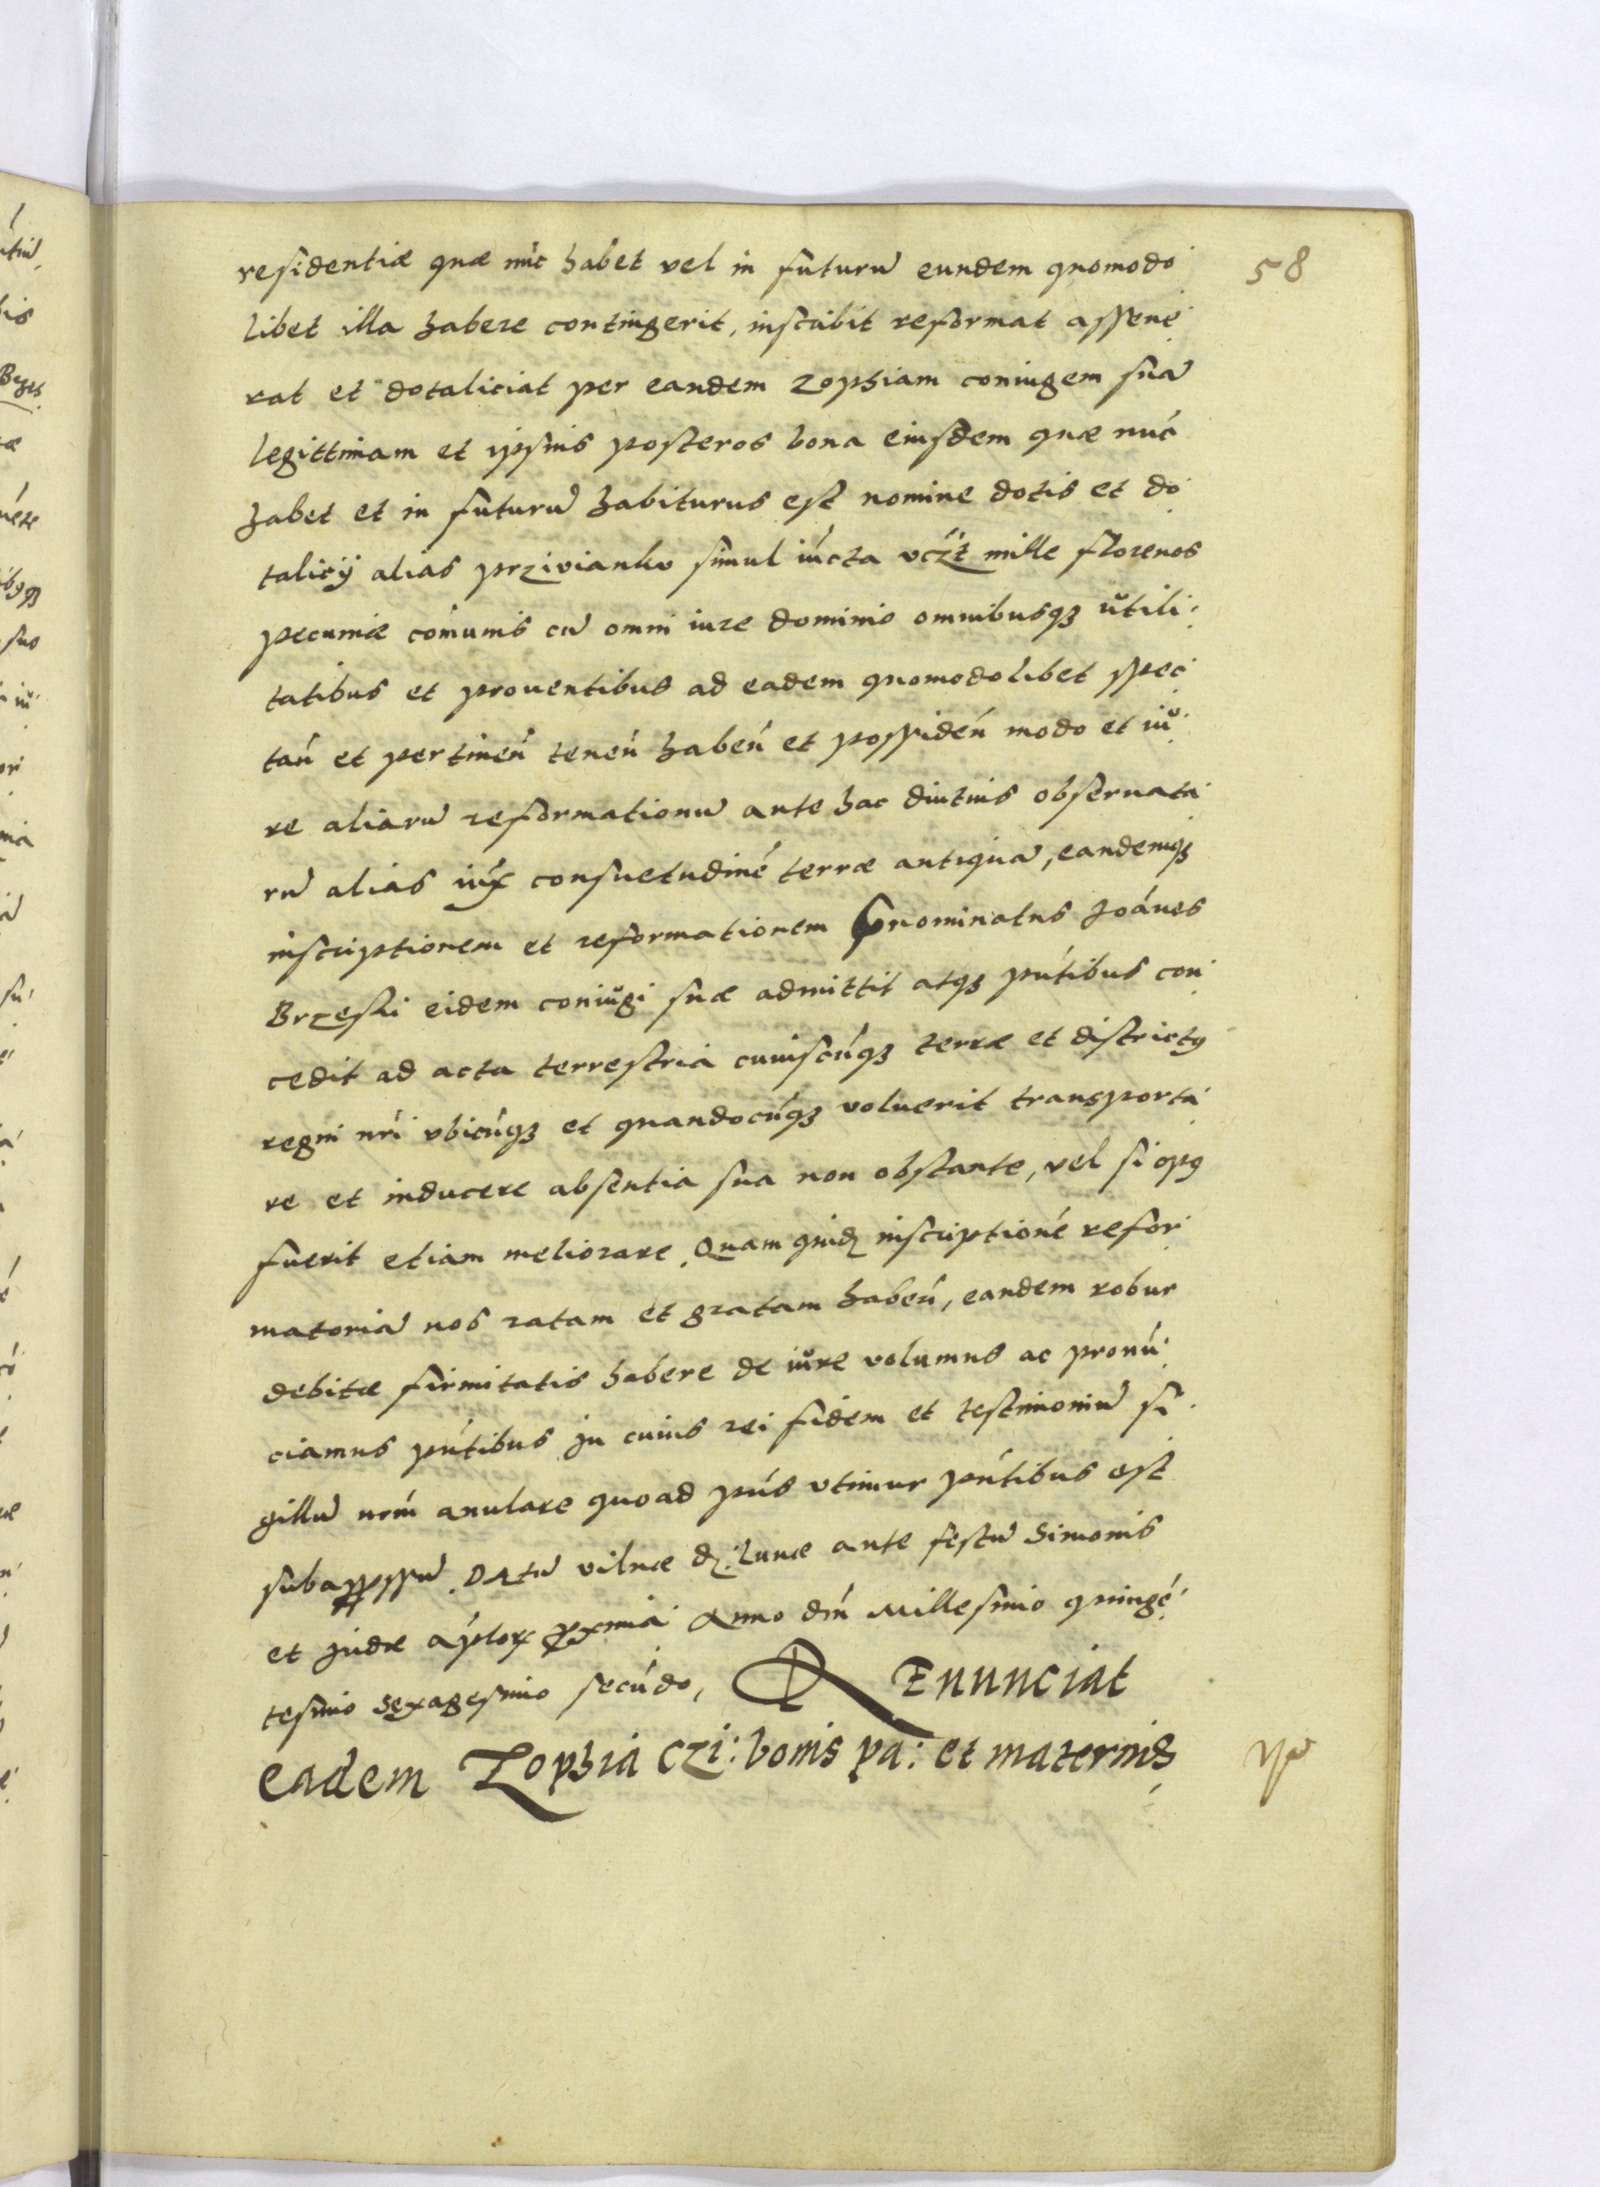 residentiæ quæ núc habet vel in futurũ eundem quomodo
58
libet illa habere contingerit, inscribit reformat assene
rat et dotaliciat per eandem Zophiam coniugem suã
legittimam et ipsius posteros bona eiusdem quæ núc
habet et in futurũ habiturus est nomine dotis et do
talicÿ alias prziwianku simul iúcta vczt mille florenos
pecuniæ cómunis cũ omni iure dominio omnibusqꝫ ŭtili
tatibus et prouentibus ad eadem quomodolibet spec
tań et pertineń teneń habeń et possideń modo et iŭ
re aliarũ reformationũ ante hac diutius obseruata
rũ alias iúx consuetudiné terræ antiquã, eandemqꝫ
inscriptionem et reformationem p̃nominatus Joánes
Brzeski eidem coniŭgi suæ admittit atqꝫ pńtibus con
cedit ad acta terrestria cuiuscúqꝫ terræ et districtꝰ
regni nri vbicúqꝫ et quandocúqꝫ voluerit transporta
re et inducere absentia sua non obstante, vel si opꝰ
fuerit etiam meliorare. Quam quidẽ inscriptioné refor
matoriã nos ratam et gratam habeń, eandem robur
debitæ firmitatis habere de iŭre volumus ac pronú
ciamus pńtibus In cuius rei fidem et testimoniũ si
gillũ nrm anulare quoad pńs vtimur pńtibus est
subappssũ. Datũ vilnæ dz: Lunæ ante festũ Simonis
et Judæ áplorꝝ pxima Anno dńi Millesimo quingé
tesimo sexagesimo secúdo, REnunciat
eadem Zophia czi: bonis pa: et maternis